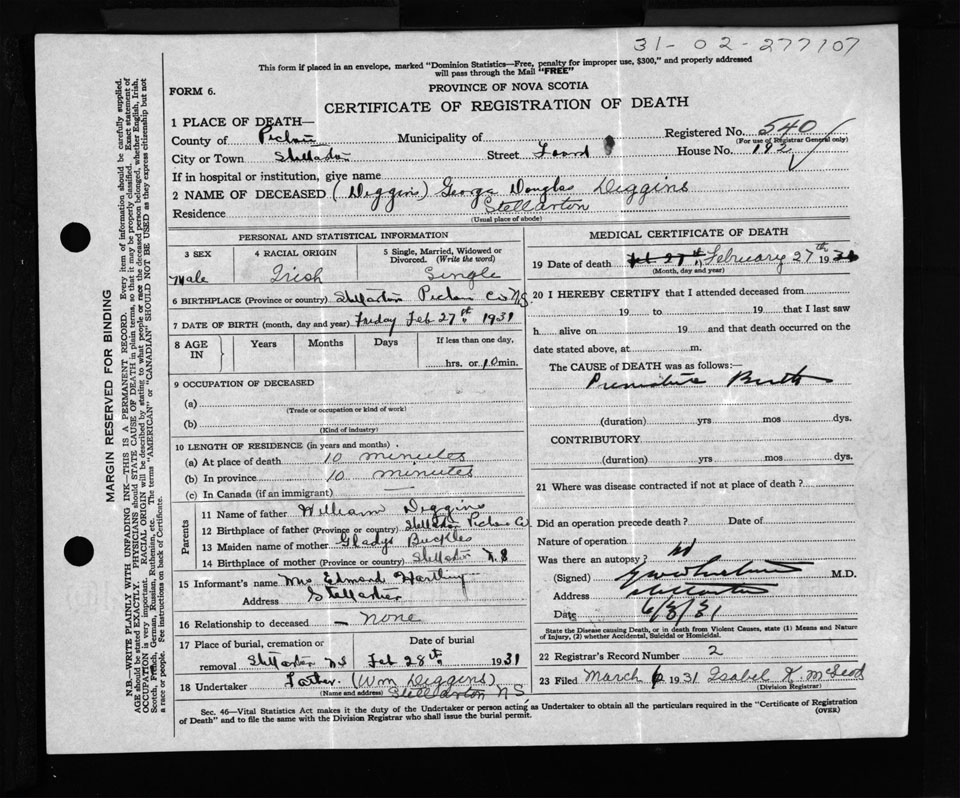 31-02-277107
This form if placed in an envelope, marked "Dominion Statistics—Free, penalty for improper use, $300," and properly addressed
will pass through the Mail "FREE"
FORM 6.
PROVINCE OF NOVA SCOTIA
CERTIFICATE OF REGISTRATION OF DEATH
1 PLACE OF DEATH—
Registered No. 540
(For use of Registrar General only)
County of Pictou Municipality of
City or Town Stellarton Street Foord House No. 192
If in hospital or institution, give name
2 NAME OF DECEASED (Diggins) George Douglas Diggins
Residence Stellarton
(Usual place of abode)
PERSONAL AND STATISTICAL INFORMATION
3 SEX 4 RACIAL ORIGIN 5 Single, Married, Widowed or
Divorced. (Write the word)
Male Irish Single
6 BIRTHPLACE (Province or country) Stellarton Pictou Co NS
7 DATE OF BIRTH (month, day and year) Friday Feb 27st 1931
8 AGE IN Years Months Days If less than one day,
hrs. or 10 min.
9 OCCUPATION OF DECEASED
(a)
(Trade or occupation or kind of work)
(b)
(Kind of industry)
10 LENGTH OF RESIDENCE (in years and months)
(a) At place of death 10 minutes
(b) In province 10 minutes
(c) In Canada (if an immigrant) —
Parents
11 Name of father William Diggins
12 Birthplace of father (Province or country) Stellarton Pictou Co
13 Maiden name of mother Gladys Buckles
14 Birthplace of mother (Province or country) Stellarton N.S
15 Informant's name Mrs Edmond Hartling
Address Stellarton
16 Relationship to deceased — none
17 Place of burial, cremation or Date of burial
removal Stellarton NS Feb 28th 1931
18 Undertaker Father. (Wm Diggins)
(Name and address) Stellarton NS
MEDICAL CERTIFICATE OF DEATH
19 Date of death February 27th 1931
(Month, day and year)
20 I HEREBY CERTIFY that I attended deceased from
19 to 19 that I last saw
h alive on 19 and that death occurred on the
date stated above, at m.
The CAUSE of DEATH was as follows:—
Premature Birth
(duration) yrs mos dys.
CONTRIBUTORY
(duration) yrs mos dys.
21 Where was disease contracted if not at place of death?
Did an operation precede death? Date of
Nature of operation
Was there an autopsy? no
(Signed) M.D.
Address Stellarton
Date 6/3/31
State the Disease causing Death, or in death from Violent Causes, state (1) Means and Nature
of Injury, (2) whether Accidental, Suicidal or Homicidal.
22 Registrar's Record Number 2
23 Filed March 6 1931 Isabel K. McLeod
(Division Registrar)
Sec. 46—Vital Statistics Act makes it the duty of the Undertaker or person acting as Undertaker to obtain all the particulars required in the "Certificate of Registration
of Death" and to file the same with the Division Registrar who shall issue the burial permit.
(OVER)
MARGIN RESERVED FOR BINDING
N.B.—WRITE PLAINLY WITH UNFADING INK—THIS IS A PERMANENT RECORD. Every item of information should be carefully supplied.
AGE should be stated EXACTLY. PHYSICIANS should STATE CAUSE OF DEATH in plain terms, so that it may be properly classified. Exact statement of
OCCUPATION is very important. RACIAL ORIGIN will be described by stating to what people or race the deceased person belonged, whether English, Irish,
Scotch, French, German, Russian, Ruthenian, etc. The terms "AMERICAN" or "CANADIAN" SHOULD NOT BE USED as they express citizenship but not
a race or people. See instructions on back of Certificate.